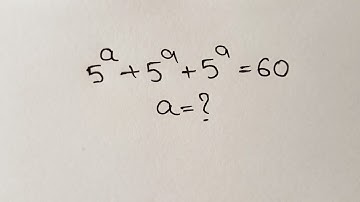 5^a + 5^a + 5^a = 60
a = ?